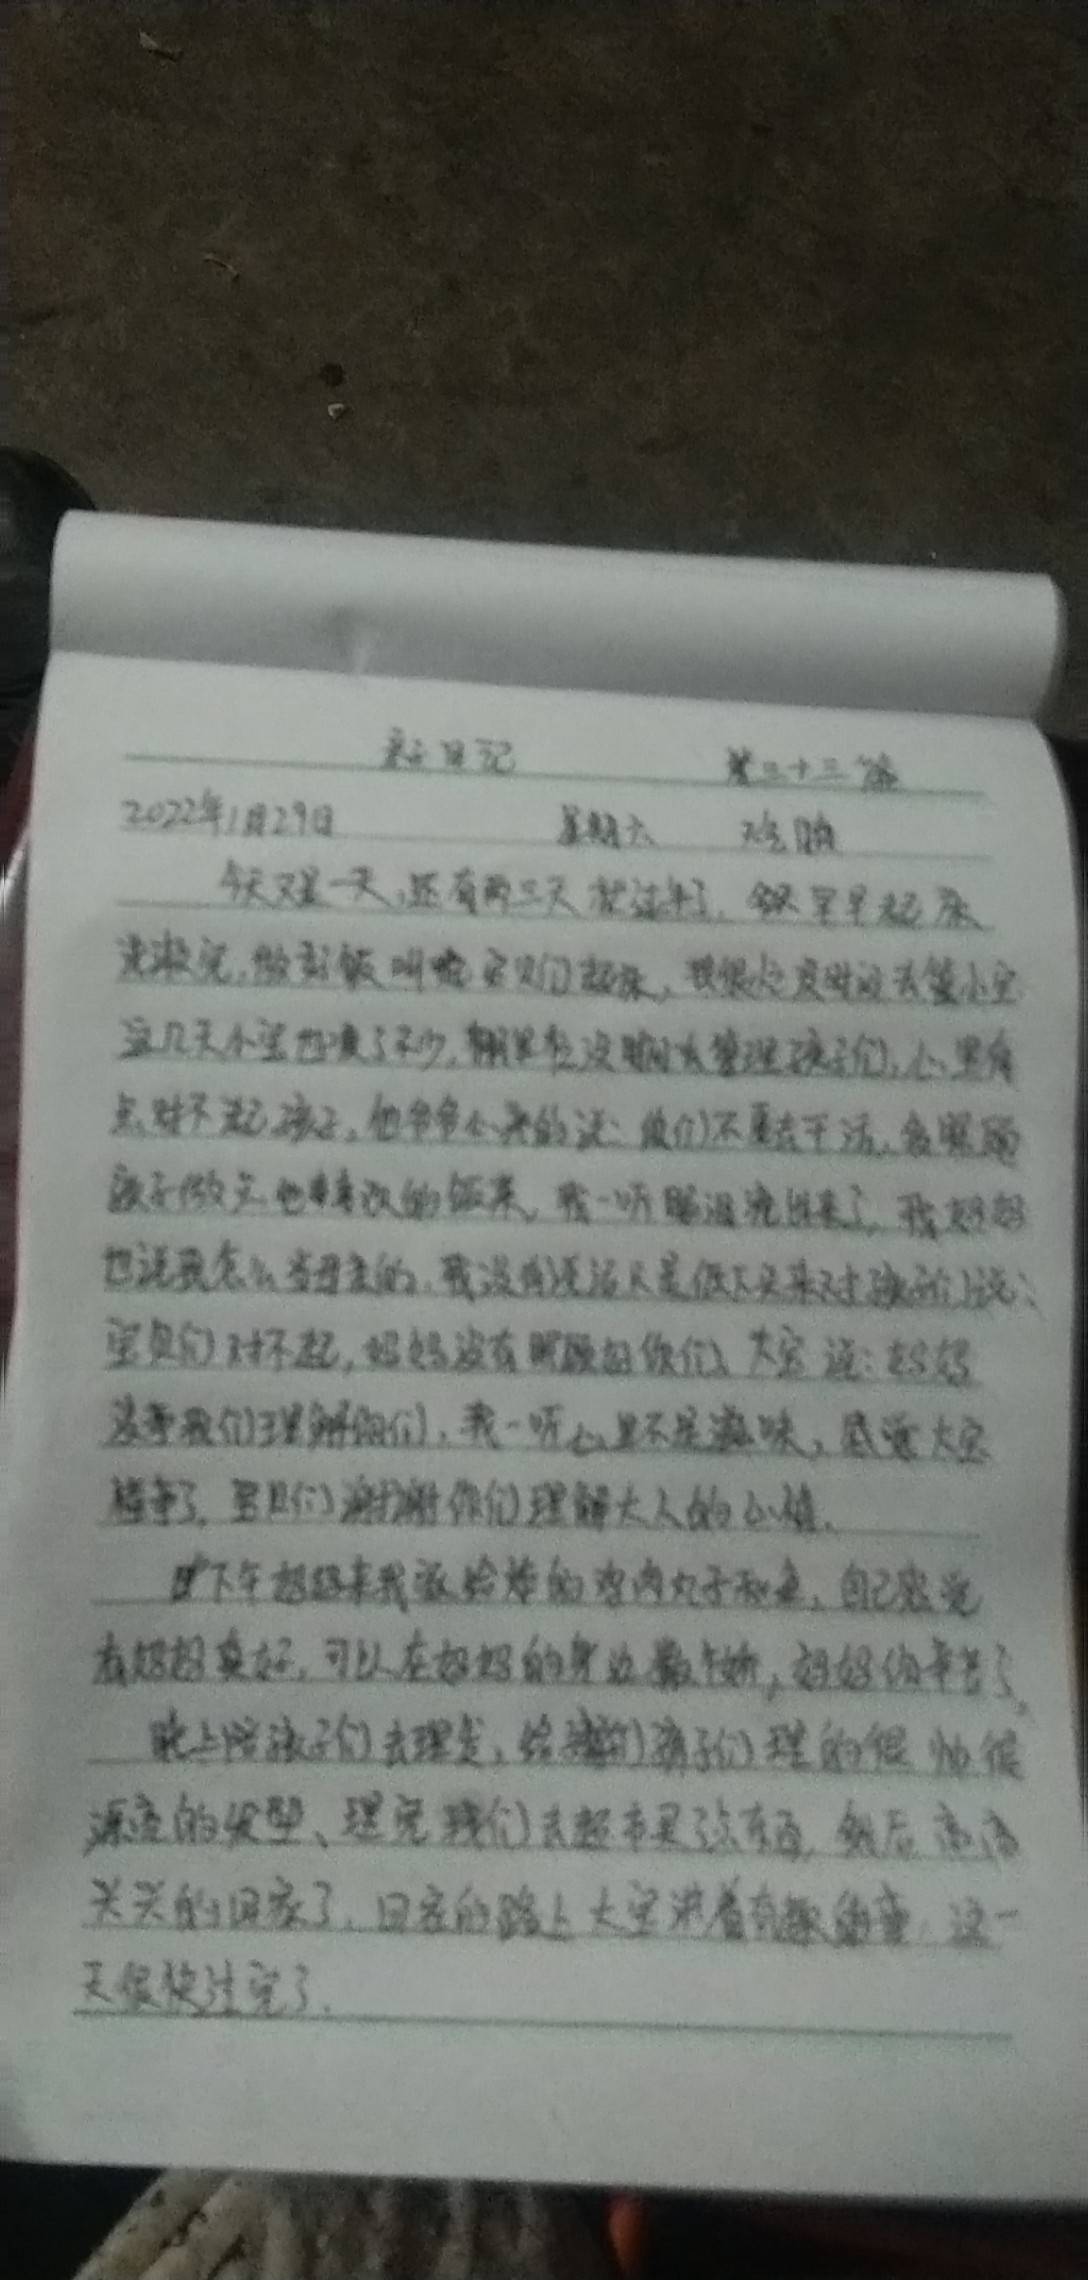 亲子日记 第三十三篇
2022年1月29日 星期六 晴
今天又是一天,还有两三天就过年了,早早起床
洗漱完,做好饭叫宝贝们起床,没时间去管小宝
这几天小宝也瘦了不少,没时间去管理孩子们,心里有
点对不起孩子,他爷爷的说:你们不要去干活,在家照顾
孩子做点他喜欢的饭菜,我一听眼泪流出来了,我妈妈
也说我怎么当母亲的,我没有还话只是低下头来对孩子们说:
宝贝们对不起,妈妈没有照顾好你们,大宝说:妈妈
没事我们理解你们,我一听心里不是滋味,感觉大宝
懂事了,宝贝们谢谢你们理解大人的心情.
下午妈妈来我家给炸的鸡肉丸子和鱼,自己感觉
有妈妈真好,可以在妈妈的身边撒个娇,妈妈你辛苦了,
晚上陪孩子们去理发,给孩子们理的很帅很
漂亮的发型、理完我们去超市买了点东西,然后高高
兴兴的回家了,回家的路上大宝讲着有趣的故事,这一
天很快过完了.